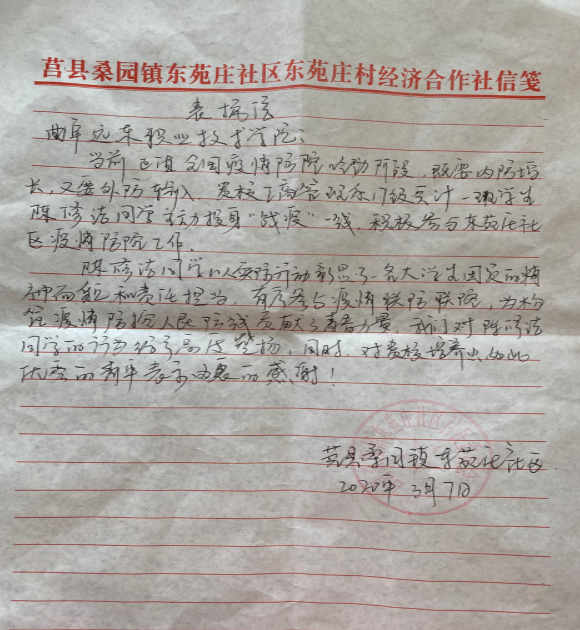 莒县桑园镇东苑庄社区东苑庄村经济合作社信笺
表扬信
曲阜远东职业技术学院：
当前正值全国疫情防控的阶段，既要内防增
长，又要外防输入，贵校工商管理系17级会计一班学生
陈修洁同学主动投身“战疫”一线，积极参与东苑庄社
区疫情防控工作。
陈修洁同学以实际行动彰显了当代大学生的精
神面貌和责任担当，有序参与疫情联防联控，为构
筑疫情防控人民防线贡献了青春力量，我们对陈修洁
同学的行为给予高度赞扬，同时，对贵校培养出如此
优秀的青年表示由衷的感谢！
莒县桑园镇东苑庄社区
2020年3月7日